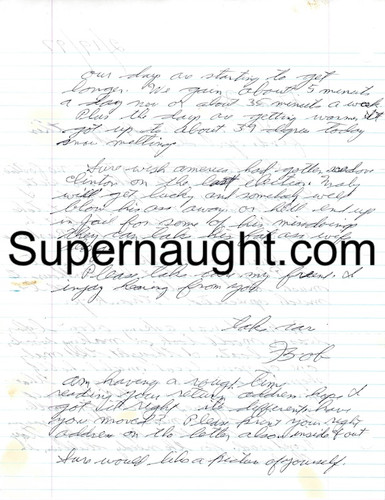 our day are starting to get
longer. We gain about 5 minute
a day now or about 35 minute a week.
Plus the days are getting warmer, It
got up to about 39 degree today
snow melting.
Sure wish america had gotten
Clinton on the last election. Maby
will get lucky and somebody will
blow his ass away or he'll end up
in jail for some of his misdoings
Supernaught.com
Please take care my friend. I
enjoy hearing from you.
Take car
Bob
am having a rough time
reading your return address hope I
got it right its different have
you moved? Please print your right
address on the letter also inside & out
Sure would like a picture of yourself.